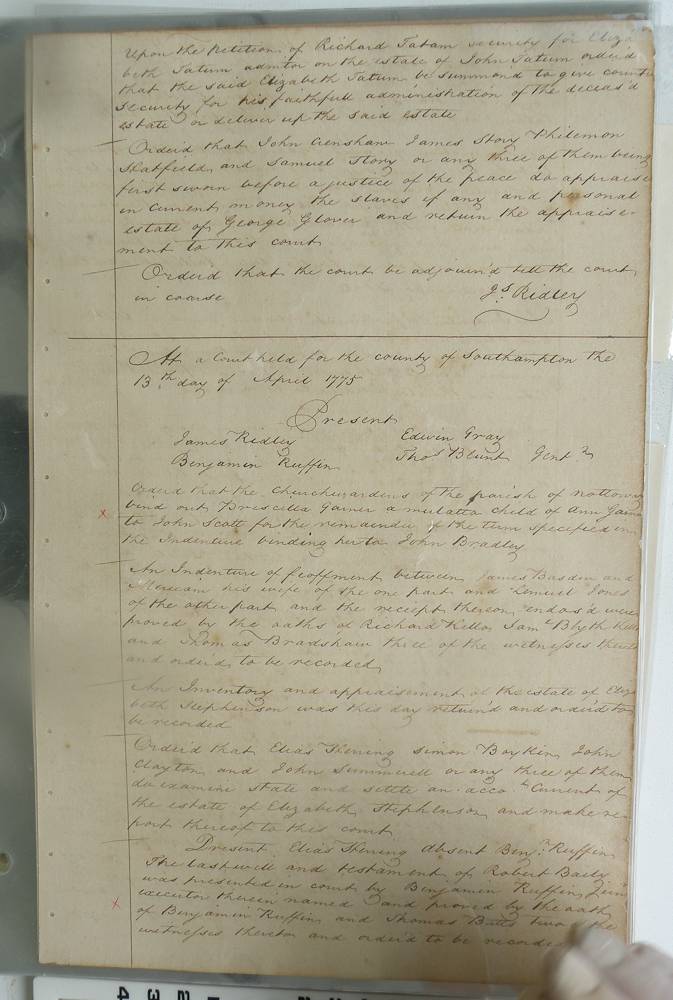 Upon the Petition of Richard Tatum security for Eliza
beth Tatum admtor on the estate of John Tatum orderd
that the said Elizabeth Tatum be summond to give counter
security for his faithfull administration of the deceas'd
estate or deliver up the said estate
Orderd that John Crenshaw James Story Philemon
Hatfield and Samuel Story or any three of them being
first sworn before a justice of the peace do appraise
in Current money the slaves if any and personal
estate of George Glover and return the appraise-
ment to this court
Orderd that the court be adjourn'd till the court
in course
Js. Ridley
At a Court held for the county of Southampton the
13th day of April 1775
Present
James Ridley Edwin Gray
Benjamin Ruffin Thos Blunt Gent
Orderd that the Churchwardens of the parish of nottoway
bind out Priscilla Gainer a mulatta child of Ann Gainer
to John Scott for the remainder of the term specified in
the Indenture binding her to John Bradley
An Indenture of feoffment between James Basden and
his wife of the one part and Lemuel Jones
of the other part and the receipt thereon endors'd were
proved by the oaths of Richard Kello Saml Blyth Kello
and Thomas Bradshaw three of the witnesses thereto
and orderd to be recorded
An Inventory and appraisement of the estate of Eliza
beth Stephenson was this day return'd and order'd to
be recorded
Orderd that Elias Hering Simon Boykin John
Clayton and John Summerell or any three of them
do examine state and settle an acco.t Current of
the estate of Elizabeth Stephenson and make re-
port thereof to this court
Present Elias Hering Absent Benj.n Ruffin
The last will and testament of Robert Baily
was presented in court by Benjamin Ruffin Jun
executor therein named and proved by the oath
of Benjamin Ruffin and Thomas Butts two of the
witnesses thereto and order'd to be recorded
4 3